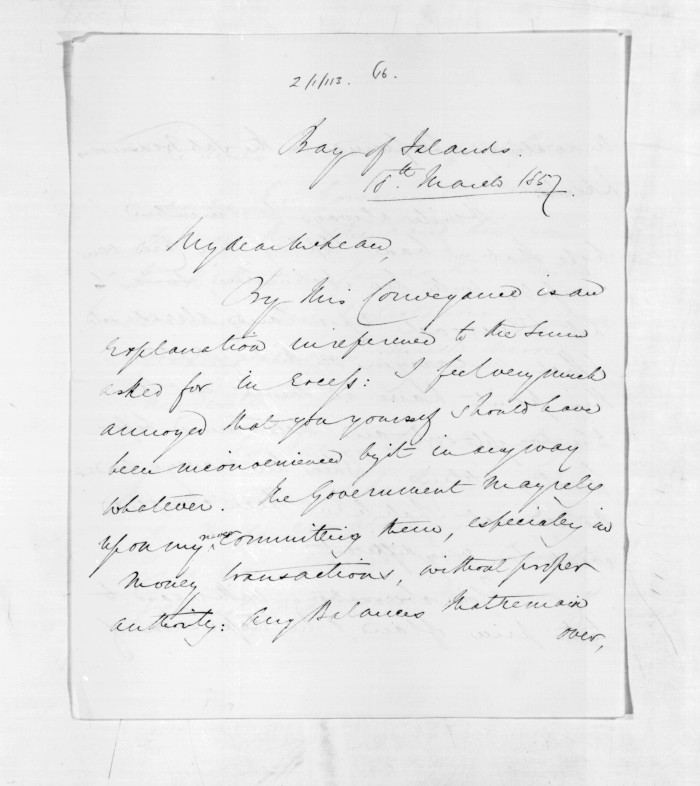 2/1/113. 66.
Bay of Islands.
18th. March 1857.
My dear McLean,
By this Conveyance is an
Explanation in reference to the Sum
asked for in Excess: I feel very much
annoyed that you yourself should have
been inconvenienced by it in any way
whatever. The Government may rely
upon my never Committing them, especially in
Money transactions, without proper
authority: Any Balances that remain
over,